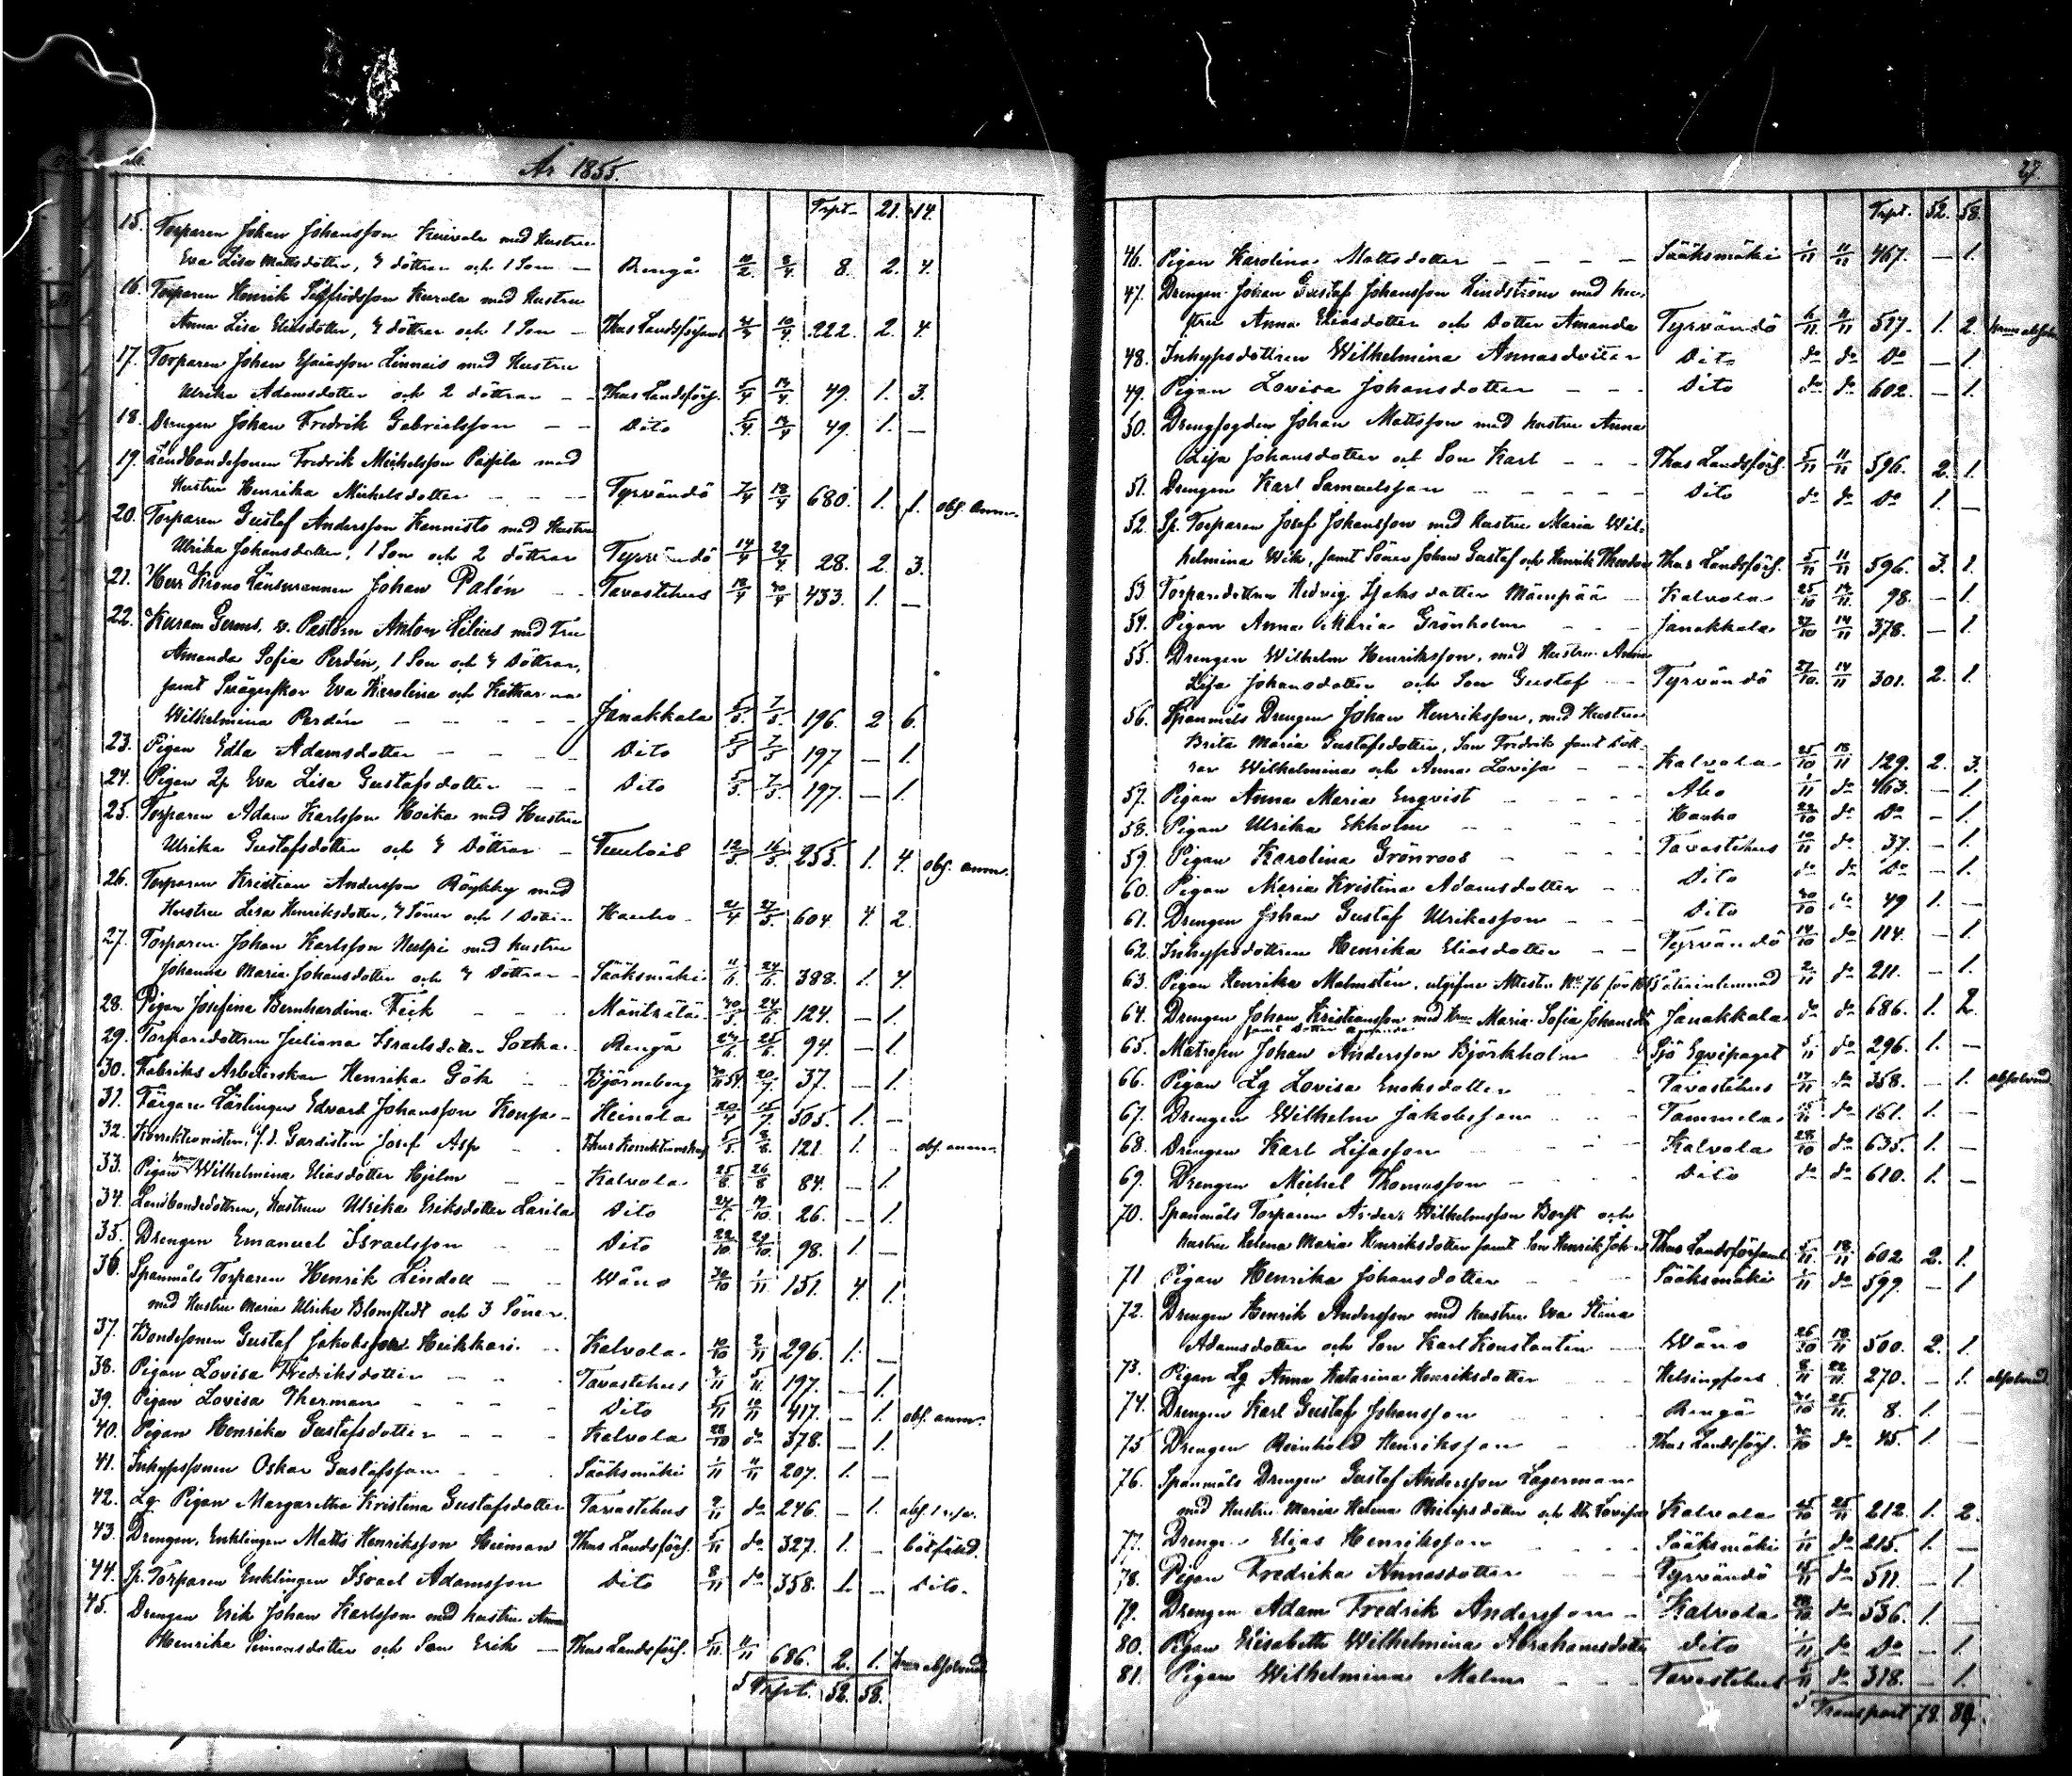 År 1855.
Trpt. 21. 14.
15. Torparen Johan Johansson med Hustru
Eva Lisa Mattsdotter, 4 döttrar och 1 Son — Rengå 10/2 8/4 8. 2. 4.
16. Torparen Henrik Sigfridsson med Hustru
Anna Lisa Eliasdotter, 4 döttrar och 1 Son — Thus Landsförsaml 10/4 222. 2. 4.
17. Torparen Johan Esaiasson Linnais med Hustru
Ulrika Adamsdotter och 2 döttrar — Thus Landsförs. 5/4 49. 1. 3.
18. Drengen Johan Fredrik Gabrielsson — Dito 5/4 49. 1. —
19. Landbondesonen Fredrik Michelsson med
Hustru Henrika Michelsdotter — Tyrvändö 7/4 18/4 680. 1. 1. obs. anm.
20. Torparen Gustaf Andersson Kannisto med Hustru
Ulrika Johansdotter, 1 Son och 2 döttrar Tyrvändö 14/4 29/4 28. 2. 3.
21. Herr Krono Länsmannen Johan Palén — Tavastehus 18/4 30/4 433. 1. —
22. v. Pastorn Anton Lilius med Fru
Amanda Sofia Perdén, 1 Son och 4 Döttrar,
samt Svägerskor Eva Karolina och Katharina
Wilhelmina Perdén — Janakkala 5/5 7/5 196. 2 6.
23. Pigan Edla Adamsdotter — Dito 5/5 7/5 197 — 1.
24. Pigan Eva Lisa Gustafsdotter — Dito 5/5 7/5 197. — 1.
25. Torparen Adam Karlsson med Hustru
Ulrika Gustafsdotter och 4 Döttrar — Tuulois 12/5 16/5 255. 1. 4. obs. anm.
26. Torparen Kristian Andersson Röykky med
Hustru Lisa Henriksdotter, 4 Söner och 1 Dotter Hauho 21/4 27/5 604 4 2.
27. Torparen Johan Karlsson med hustru
Johanna Maria Johansdotter och 4 Döttrar — Sääksmäki 24/6 388. 1. 4.
28. Pigan Josefina Bernhardina — Mäntsälä 30/5 24/6 124. — 1.
29. Torparedottren Juliana Israelsdotter Sotka Rengå 25/6 94. — 1.
30. Fabriks Arbeterskan Henrika Gök — Björneborg 20/7 37. — 1.
31. Färgare Lärlingen Edvard Johansson — Heinola 505. 1. —
32. Korrektionisten, f.d. Gardisten Josef Asp — 121. 1. obs. anm.
33. Pigan Wilhelmina Eliasdotter Hjelm Kalvola 25/8 26/8 84. — 1.
34. Landbondedottren, hustrun Ulrika Eriksdotter Larila Dito 19/10 26. — 1.
35. Drengen Emanuel Israelsson — Dito 22/10 29/10 98. 1. —
36. Spanmåls Torparen Henrik Lindell — Wåno 30/10 1/11 151. 4 1.
med Hustru Maria Ulrika Blomstedt och 3 Söner.
37. Bondesonen Gustaf Jakobsson Heikkari — Kalvola 10/10 2/11 296. 1. —
38. Pigan Lovisa Fredriksdotter — Tavastehus 5/11 197. — 1.
39. Pigan Lovisa Therman — Dito 5/11 10/11 417. — 1. obs. anm.
40. Pigan Henrika Gustafsdotter — Kalvola 28/10 do 378. — 1.
41. Inhyssonen Oskar Gustafsson — Sääksmäki 1/11 11/11 207. 1. —
42. Lg Pigan Margaretha Kristina Gustafsdotter Tavastehus 9/11 do 246. — 1.
43. Drengen, Enklingen Matts Henriksson Thus Landsförs. 5/11 do 327. 1. — botfäld.
44. Sp. Torparen Enklingen Israel Adamsson Dito 8/11 do 358. 1. — Dito.
45. Drengen Erik Johan Karlsson med hustru Anna
Henrika Simonsdotter och Son Erik — Thus Landsförs. 5/11 11/11 686. 2. 1. absolverad
Trpt. 52. 58.
27.
Trpt. 52. 58.
46. Pigan Karolina Mattsdotter — Sääksmäki 1/11 11/11 467. — 1.
47. Drengen Johan Gustaf Johansson Lindström med hu-
stru Anna Eliasdotter och Dotter Amanda Tyrvändö 6/11 11/11 517. 1. 2.
48. Inhysdottren Wilhelmina Annasdotter Dito do do Do — 1.
49. Pigan Lovisa Johansdotter — Dito do do 602. — 1.
50. Drengfogden Johan Mattsson med hustru Anna
Lisa Johansdotter och Son Karl — Thus Landsförs. 5/11 11/11 596. 2. 1.
51. Drengen Karl Samuelsson — Dito do do Do 1. —
52. Sp. Torparen Josef Johansson med Hustru Maria Wil-
helmina Wik, samt Söner Johan Gustaf och Henrik Theodor Thus Landsförs. 5/11 11/11 596. 3. 1.
53. Torparedottren Hedvig — Kalvola 25/10 14/11 98. — 1.
54. Pigan Anna Maria Grönholm — Janakkala 27/10 14/11 378. — 1.
55. Drengen Wilhelm Henriksson, med Hustru Anna
Lisa Johansdotter och Son Gustaf — Tyrvändö 27/10 14/11 301. 2. 1.
56. Spanmåls Drengen Johan Henriksson, med Hustru
Brita Maria Gustafsdotter, Son Fredrik samt Dött-
rar Wilhelmina och Anna Lovisa — Kalvola 25/10 18/11 129. 2. 3.
57. Pigan Anna Maria Enqvist — Åbo 1/11 do 463. — 1.
58. Pigan Ulrika Ekholm — Hauho 22/10 do Do — 1.
59. Pigan Karolina Grönroos — Tavastehus 10/11 do 37. — 1.
60. Pigan Maria Kristina Adamsdotter — Dito do do Do — 1.
61. Drengen Johan Gustaf Ulrikasson — Dito 30/10 do 49 1. —
62. Inhysdottren Henrika Eliasdotter — Tyrvändö 14/10 do 114. — 1.
63. Pigan Henrika Malmstén, utgifne Attesten No 76 2/11 do 211. — 1.
64. Drengen Johan Kristiansson med Hru Maria Sofia Johansdr Janakkala do do 686. 1. 2.
samt Dotter
65. Matrosen Johan Andersson Björkholm Sjö Eqvipaget 5/11 do 296. 1. —
66. Pigan Lg Lovisa Enoksdotter — Tavastehus 17/11 do 358. — 1. absolverad
67. Drengen Wilhelm Jakobsson — Tammela do 161. 1. —
68. Drengen Karl Lisasson — Kalvola 28/10 do 635. 1. —
69. Drengen Michel Thomasson — Dito do do 610. 1. —
70. Spanmåls Torparen Anders Wilhelmsson och
hustru Helena Maria Henriksdotter samt Son Henrik Johan Thus Landsförsaml 5/11 18/11 602 2. 1.
71 Pigan Henrika Johansdotter — Sääksmäki 1/11 do 599. — 1
72. Drengen Henrik Andersson med hustru Eva Stina
Adamsdotter och Son Karl Konstantin — Wåno 26/10 18/11 500. 2. 1.
73. Pigan Lg Anna Katarina Henriksdotter — Helsingfors 8/11 22/11 270. — 1. absolverad
74. Drengen Karl Gustaf Johansson — Rengå 25/11 8. 1. —
75 Drengen Reinhold Henriksson — Thus Landsförs. 30/10 do 45. 1. —
76. Spanmåls Drengen Gustaf Andersson Lagerman
med Hustru Maria Helena Philipsdotter och Dr Lovisa Kalvola 25/10 25/11 212. 1. 2.
77. Drengen Elias Henriksson — Sääksmäki 1/11 do 215. 1. —
78. Pigan Fredrika Annasdotter — Tyrvändö do 511. — 1.
79. Drengen Adam Fredrik Andersson — Kalvola 28/10 do 536. 1. —
80. Pigan Elisabeth Wilhelmina Abrahamsdotter Dito 1/11 do Do — 1.
81. Pigan Wilhelmina Malm — Tavastehus do 318. — 1.
Transport 78. 89.